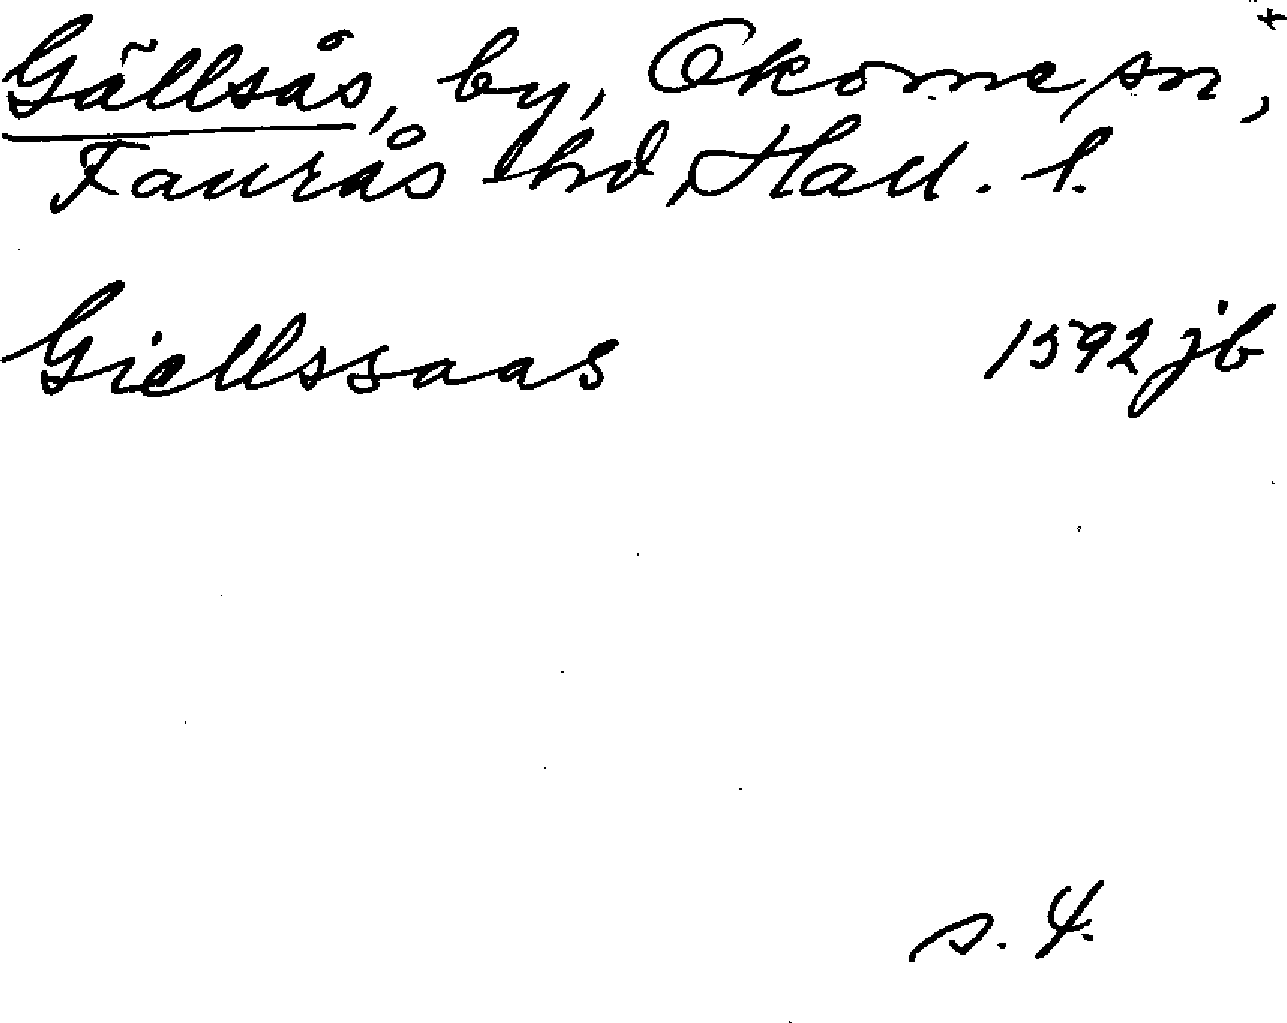 Gällsås, by, Okome sn,
Faurås hd, Hall. l.
Giellssaas 1592 jb
s. 4.